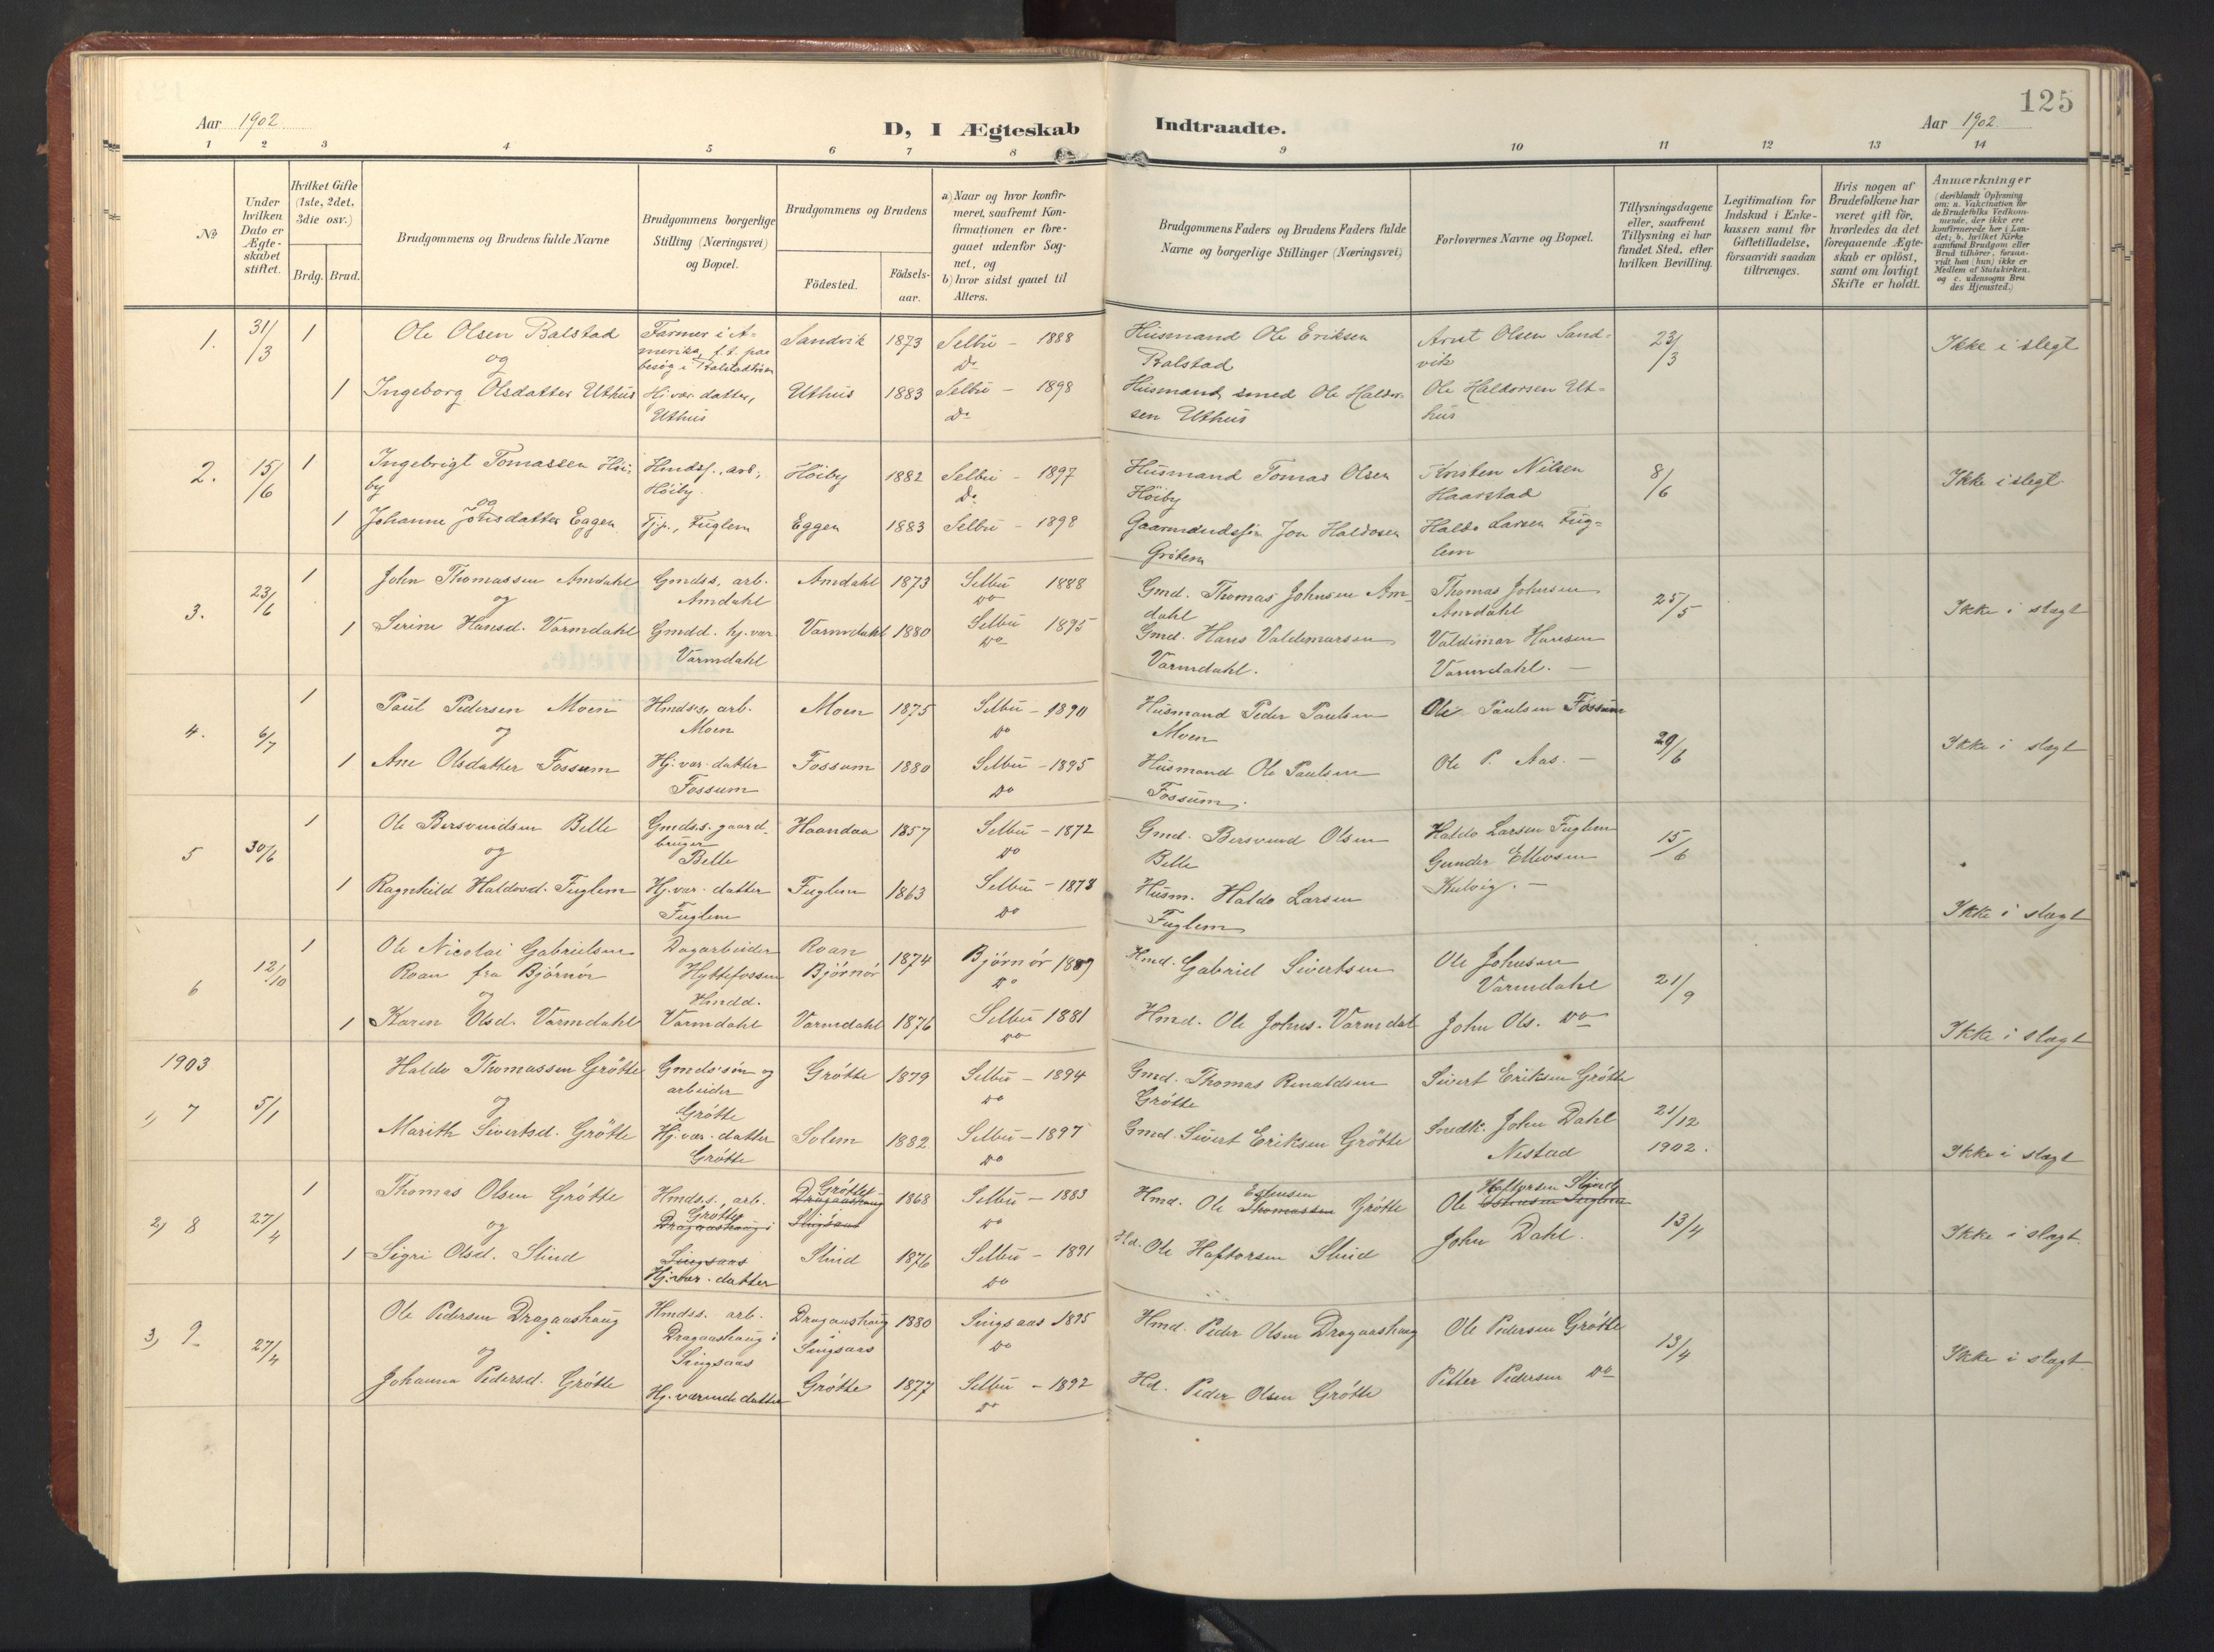 125
Aar 1902
D, I Ægteskab
Indtraadte.
Aar 1902.
1 2 3 4 5 6 7 8 9 10 11 12 13 14
No
Under hvilken Dato er Ægteskabet stiftet.
Hvilket Gifte (1ste, 2det, 3die osv.)
Brdg. Brud.
Brudgommens og Brudens fulde Navne
Brudgommens borgerlige Stilling (Næringsvei) og Bopæl.
Brudgommens og Brudens
Födested.
Födselsaar.
a) Naar og hvor konfirmeret, saafremt Konfirmationen er foregaaet udenfor Sognet, og
b) hvor sidst gaaet til Alters.
Brudgommens Faders og Brudens Faders fulde Navne og borgerlige Stillinger (Næringsvei)
Forlovernes Navne og Bopæl.
Tillysningsdagene eller, saafremt Tillysning ei har fundet Sted, efter hvilken Bevilling.
Legitimation for Indskud i Enkekassen samt for Giftetilladelse, forsaavidt saadan tiltrænges.
Hvis nogen af Brudefolkene har været gift för, hvorledes da det foregaaende Ægteskab er oplöst, samt om lovligt Skifte er holdt.
Anmærkninger
(deriblandt Oplysning om: a. Vakcination for de Brudefolks Vedkommende, der ikke ere konfirmerede her i Landet; b. hvilket Kirkesamfund Brudgom eller Brud tilhörer, forsaavidt han (hun) ikke er Medlem af Statskirken, og c. udensogns Brudes Hjemsted.)
1. 31/3 1 Ole Olsen Balstad Farmer i Amerika, f. t. paa besøg i Sandvik 1873 Selbu - 1888 Husmand Ole Eriksen Balstad Arnt Olsen Sandvik 23/3 Ikke i slegt
og Do
1 Ingeborg Olsdatter Uthus Hj. vær. datter, Uthus Uthus 1883 Selbu - 1898 Husmand, smed Ole Haldorsen Uthus Ole Haldorsen Uthus
Do
2. 15/6 1 Ingebrigt Tomassen Höiby Hmdss., arb., Höiby. Höiby 1882 Selbu - 1897 Husmand Tomas Olsen Höiby Karsten Nilsen Haarstad 8/6 Ikke i slegt
og Do
1 Johanne Jonsdatter Eggen Tjp., Fuglem Eggen 1883 Selbu - 1898 Gaarmandssøn Jon Haldosen Gröten Haldo Larsen Fuglem
3. 23/6 1 John Thomassen Amdahl Gmdss. arb. Amdahl Amdahl 1873 Selbu 1888 Gmd. Thomas Johnsen Amdahl Thomas Johnsen Amdahl 25/5 Ikke i slagt
og Do
1 Serine Hansd. Varmdahl Gmdd. hj. vær. Varmdahl Varmdahl 1880 Selbu 1895 Gmd. Hans Valdemarsen Varmdahl. Valdimar Hansen Varmdahl. -
Do
4. 6/7 1 Paul Pedersen Moen Hmdss, arb. Moen Moen 1875 Selbu - 1890 Husmand Peder Paulsen Moen Ole Paulsen Fossum 29/6 Ikke i slagt
og Do
1 Ane Olsdatter Fossum Hj. vær. datter Fossum Fossum 1880 Selbu - 1895 Husmand Ole Paulsen Fossum. Ole P. Aas. -
Do
5 30/6 1 Ole Bersvendsen Belle Gmds.s. gaardbruger Belle Haandaa 1857 Selbu - 1872 Gmd. Bersvend Olsen Belle Haldo Larsen Fuglem 15/6
og Do Gunder Ellevsen Kulvig. -
1 Ragnhild Haldosd. Fuglem Hj. vær. datter Fuglem Fuglem 1863 Selbu - 1878 Husm. Haldo Larsen Fuglem Ikke i slagt
Do
6 12/10 1 Ole Nicolai Gabrielsen Roan fra Björnör Dagarbeider Hyttefossen Roan Björnör 1874 Björnör 1889 Hmd. Gabriel Sivertsen Ole Johnsen Varmdahl 21/9
og Do
1 Karen Olsd. Varmdahl Hmdd. Varmdahl Varmdahl 1876 Selbu 1881 Hmd. Ole Johns. Varmdal John Ols. Do Ikke i slagt
Do
1903
1, 7 5/1 Haldo Thomassen Grötte Gmds.søn og arbeider Grötte Grötte 1879 Selbu - 1894 Gmd. Thomas Renaldsen Grötte Sivert Eriksen Grötte 21/12 1902.
og Do
Marith Sivertsd. Grötte Hj. vær. datter Grötte Solem 1882 Selbu - 1897 Gmd. Sivert Eriksen Grötte Snedk. John Dahl Nestad Ikke i slagt
Do
2, 8 27/4 1 Thomas Olsen Grötte Hmds.s., arb. Grötte Dragaashaug i Singsaas Grötte Dragaashaug Singsaas 1868 Selbu - 1883 Hmd. Ole Estensen Thomassen Grötte Ole Haftorsen Slind 13/4 Ikke i slagt.
og Do
1 Sigri Olsd. Slind Hj. vær. datter Slind 1876 Selbu - 1891 Hd. Ole Haftorsen Slind John Dahl.
Do
3, 9 27/4 Ole Pedersen Dragaashaug Hmdss. arb. Dragaashaug i Singsaas Dragaashaug Singsaas 1880 Singsaas 1895 Hmd. Peder Olsen Dragaashaug Ole Pedersen Grötte 13/4 Ikke i slagt
og Do
Johanna Pedersd. Grötte Hj. værende datter Grötte 1877 Selbu - 1892 Hd. Peder Olsen Grötte Petter Pedersen Do
Do